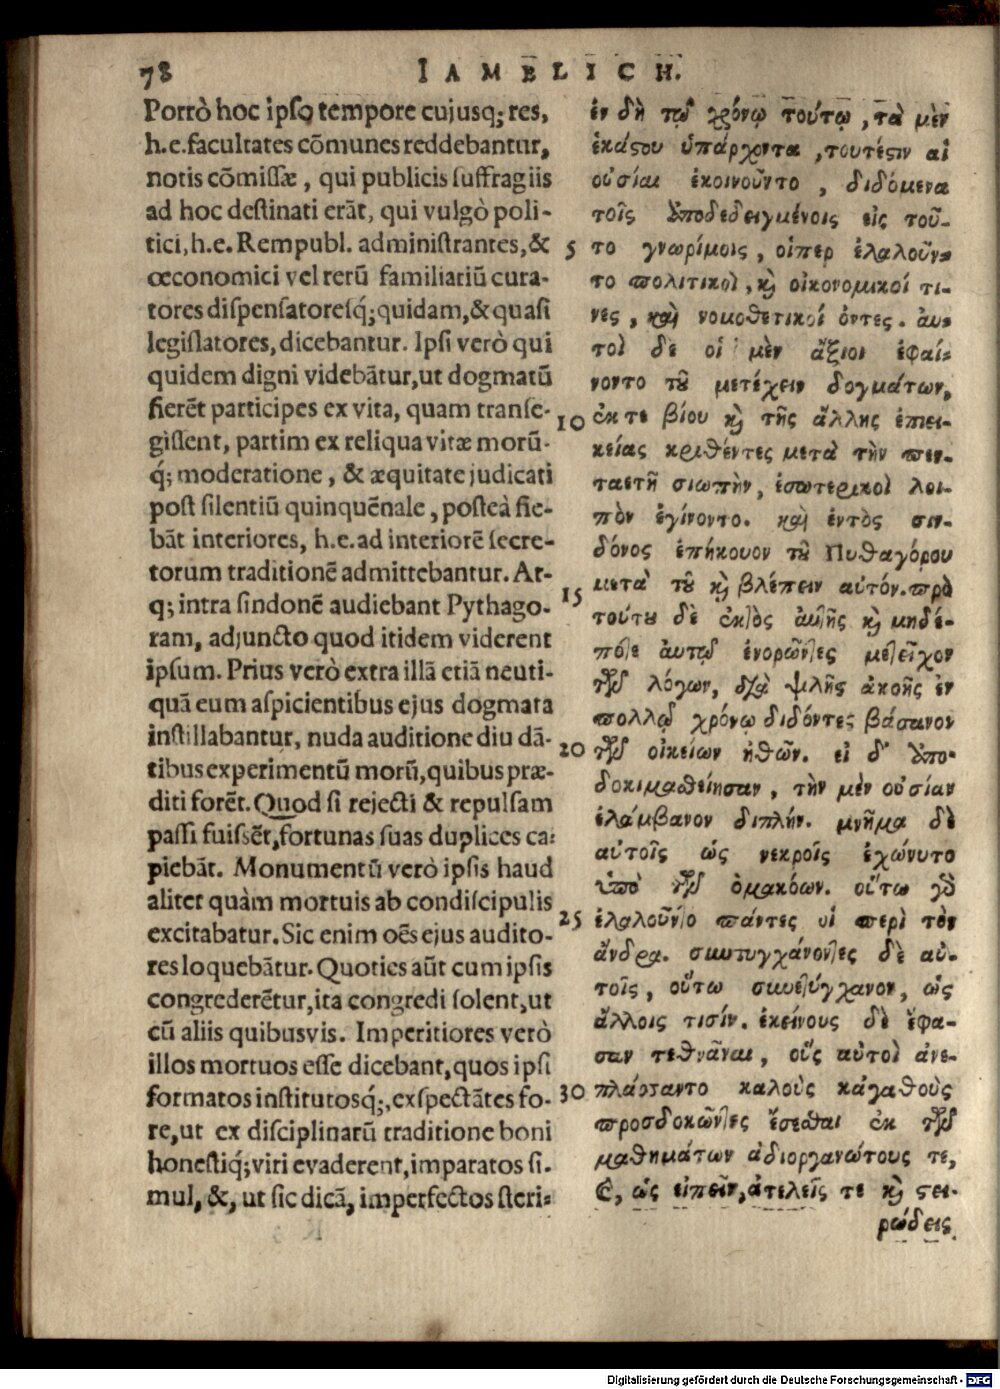 78
IAMBLICH.
Porrò hoc ipso tempore cujusq; res,
h.e. facultates cōmunes reddebantur,
notis cōmissæ, qui publicis suffragiis
ad hoc destinati erāt, qui vulgò poli-
tici, h.e. Rempubl. administrantes, &
œconomici vel rerū familiariū cura-
tores dispensatoresq́; quidam, & quasi
legislatores, dicebantur. Ipsi verò qui
quidem digni videbātur, ut dogmatū
fierēt participes ex vita, quam transe-
gissent, partim ex reliqua vitæ morū-
q́; moderatione, & æquitate judicati
post silentiū quinquēnale, posteà fie-
bāt interiores, h.e. ad interiorē secre-
torum traditionē admittebantur. At-
q; intra sindonē audiebant Pythago-
ram, adjuncto quod itidem viderent
ipsum. Prius verò extra illā etiā neuti-
quā eum aspicientibus ejus dogmata
instillabantur, nuda auditione diu dā-
tibus experimentū morū, quibus præ-
diti forēt. Quod si rejecti & repulsam
passi fuissēt, fortunas suas duplices ca-
piebāt. Monumentū verò ipsis haud
aliter quàm mortuis ab condiscipulis
excitabatur. Sic enim oēs ejus audito-
res loquebātur. Quoties aūt cum ipsis
congrederētur, ita congredi solent, ut
cū aliis quibusvis. Imperitiores verò
illos mortuos esse dicebant, quos ipsi
formatos institutosq́;, exspectātes fo-
re, ut ex disciplinarū traditione boni
honestiq́; viri evaderent, imparatos si-
mul, &, ut sic dicā, imperfectos steri-
5
10
15
20
25
30
ἐν δὴ τῷ χρόνῳ τούτῳ, τὰ μὲν
ἑκάστου ὑπάρχοντα, τουτέστιν αἱ
οὐσίαι ἐκοινοῦντο, διδόμενα
τοῖς ἀποδεδειγμένοις εἰς τοῦ-
το γνωρίμοις, οἵπερ ἐλαλοῦν-
το πολιτικοὶ, καὶ οἰκονομικοί τι-
νες, καὶ νομοθετικοί ὄντες. αὐ-
τοὶ δὲ οἱ μὲν ἄξιοι ἐφαί-
νοντο τοῦ μετέχειν δογμάτων,
ἐκ τε βίου καὶ τῆς ἄλλης ἐπιει-
κείας κριθέντες μετὰ τὴν πεν-
ταετῆ σιωπὴν, ἐσωτερικοὶ λοι-
πὸν ἐγίνοντο. καὶ ἐντὸς σιν-
δόνος ἐπήκουον τοῦ Πυθαγόρου
μετὰ τοῦ καὶ βλέπειν αὐτόν. πρὸ
τούτου δὲ ἐκτὸς αὐτῆς καὶ μηδέ-
ποτε αὐτῷ ἐνορῶντες μετεῖχον
τῶν λόγων, διὰ ψιλῆς ἀκοῆς ἐν
πολλῷ χρόνῳ διδόντες βάσανον
τῶν οἰκείων ἠθῶν. εἰ δ' ἀπο-
δοκιμασθείησαν, τὴν μὲν οὐσίαν
ἐλάμβανον διπλήν. μνῆμα δὲ
αὐτοῖς ὡς νεκροῖς ἐχώνυτο
ὑπὸ τῶν ὁμακόων. οὕτω γὸ
ἐλαλοῦντο πάντες οἱ περὶ τὸν
ἄνδρα. συντυγχάνοντες δὲ αὐ-
τοῖς, οὕτω συνετύγχανον, ὡς
ἄλλοις τισίν. ἐκείνους δὲ ἔφα-
σαν τεθνᾶναι, οὓς αὐτοὶ ἀνε-
πλάσαντο καλοὺς κἀγαθοὺς
προσδοκῶντες ἔσεσθαι ἐκ τῶν
μαθημάτων ἀδιοργανώτους τε,
καὶ, ὡς εἰπεῖν, ἀτελεῖς τε καὶ στει-
ρώδεις
Digitalisierung gefördert durch die Deutsche Forschungsgemeinschaft - DFG